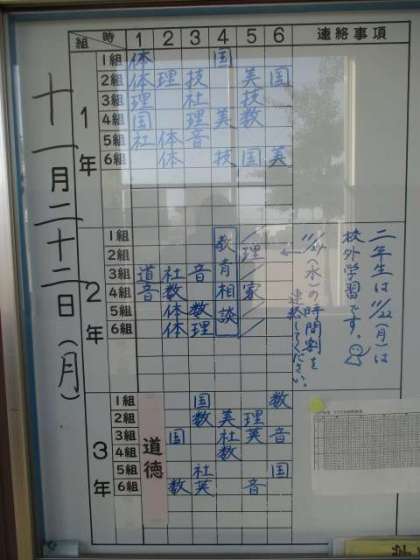 十一月二十二日(月)
組 時 1 2 3 4 5 6 連絡事項
1年
1組 体 国
2組 体 理 技 英 国
3組 理 社 技
4組 国 理 英 数
5組 社 体 音
6組 体 技 国 英
2年
1組
2組 理
3組 道 社 音
4組 音 数 家
5組 体 数
6組 体 理
教育相談
二年生は11/22(月)は
校外学習です。
11/24(水)の時間割を
連絡してください。
3年
道徳
1組 国 数
2組 数 英 理
3組 国 社 英 音
4組 数
5組 社 国
6組 数 英 音